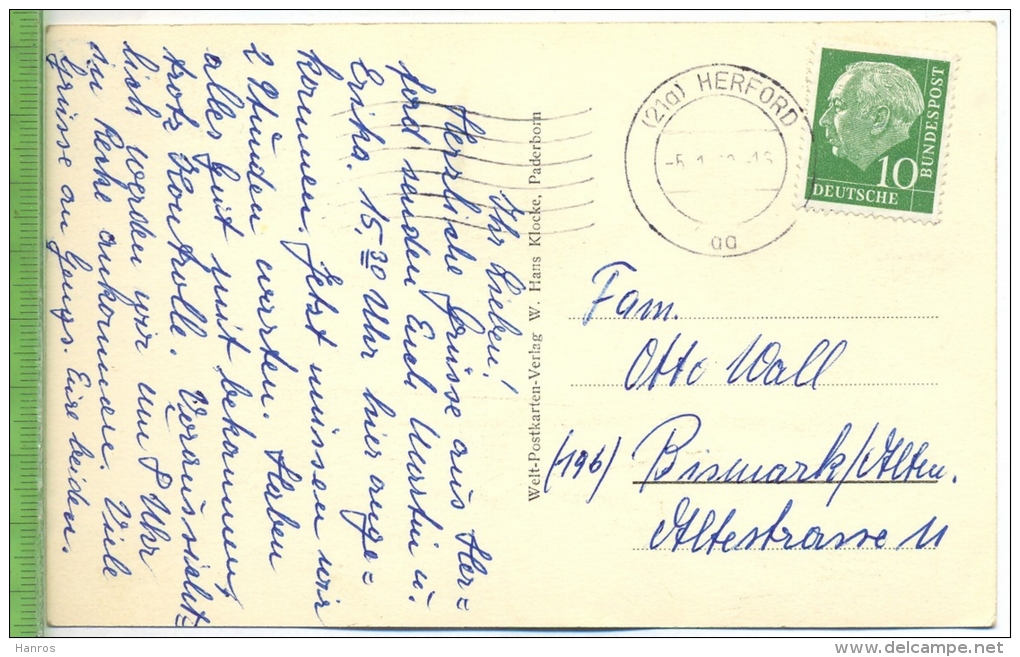 Ihr Lieben!
Herzliche Grüsse aus Her=
ford senden Euch Martin u.
Erika. 15,30 Uhr hier ange=
kommen. Jetzt müssen wir
2 Stunden warten. Haben
alles gut mit bekommen,
trotz Kontrolle. Voraussicht=
lich werden wir um 8 Uhr
in ankommen. Viele
Grüsse an Eure beiden.
Welt-Postkarten-Verlag W. Hans Klocke, Paderborn
(21a) HERFORD
aa
10
DEUTSCHE
BUNDESPOST
Fam.
Otto Wall
(19b) Bismark/Altm.
Altestrasse 11
Hanros
www.delcampe.net